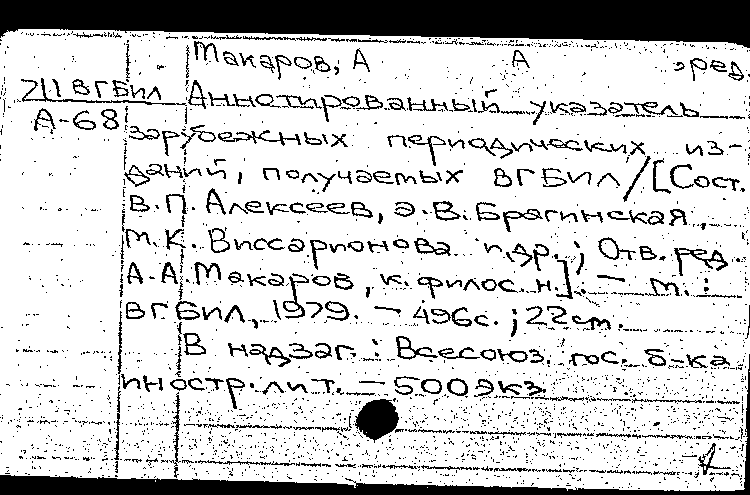 Макаров, А А , ред.
7/1 ВГБИЛ Аннотированный указатель
А-68 зарубежных периодических из-
даний, получаемых ВГБИЛ / [Сост.
В.П. Алексеев, Э.В. Брагинская,
М.К. Виссарионова и др.; Отв. ред.
А.А. Макаров, к. филос. н.]. — М.:
ВГБИЛ, 1979. — 496с.; 22см.
В надзаг.: Всесоюз. гос. б-ка
иностр. лит. — 500экз